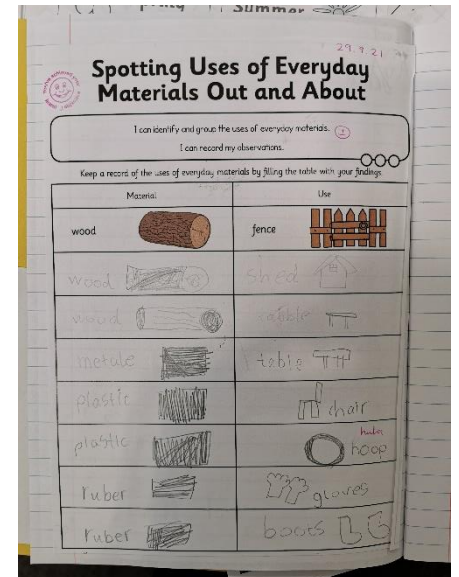 Summer
29.9.21
Spotting Uses of Everyday
Materials Out and About
I can identify and group the uses of everyday materials.
I can record my observations.
Keep a record of the uses of everyday materials by filling the table with your findings
Material Use
wood fence
wood shed
wood table
metale table
plastic chair
hula
plastic hoop
ruber gloves
ruber boots